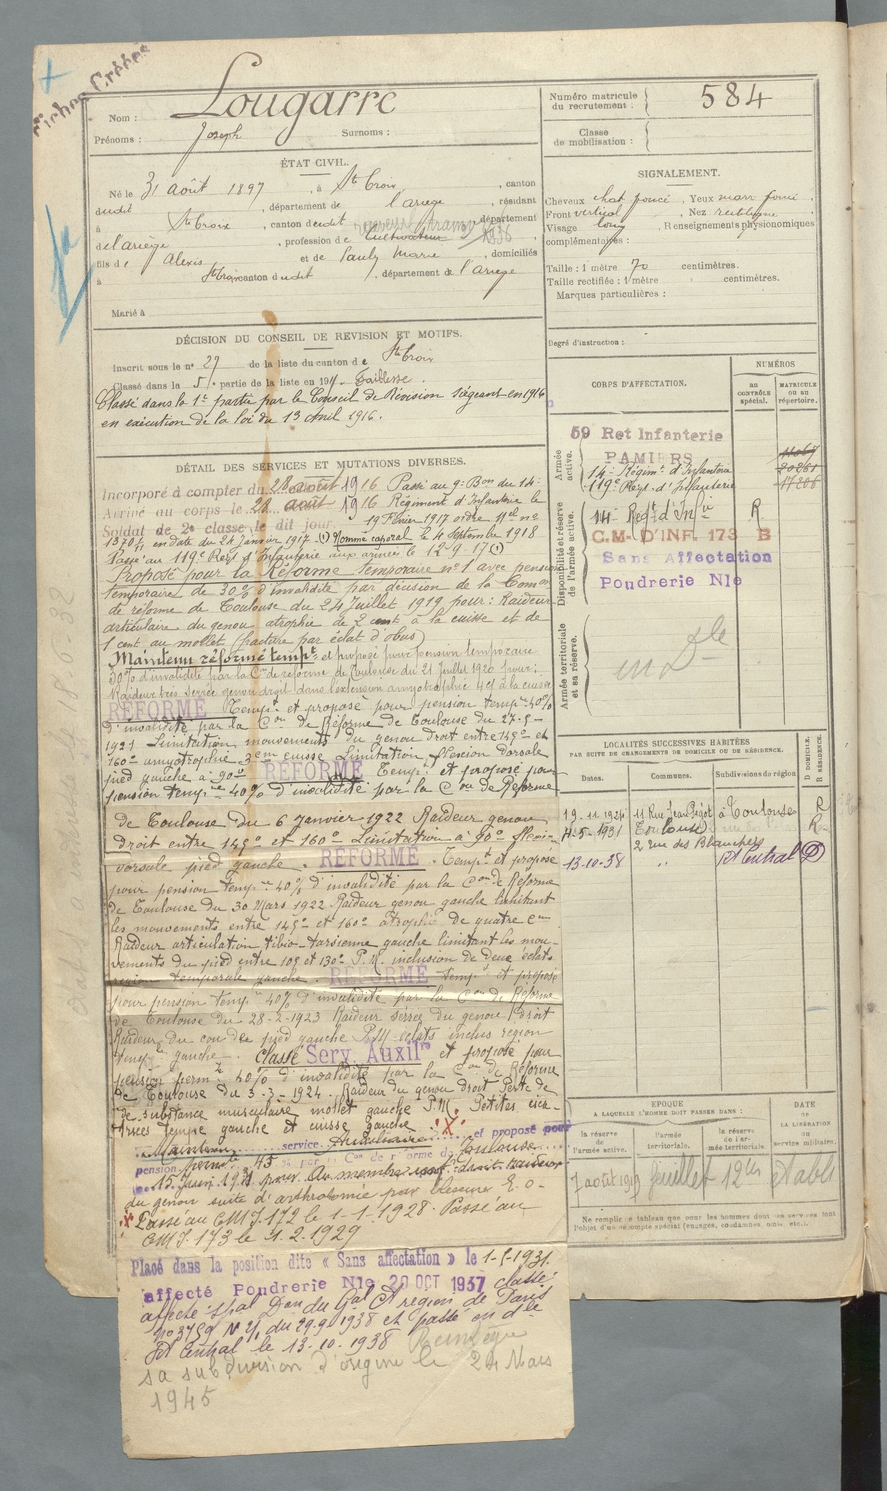 Fiches Créées
Nom : Lougarre
Prénoms : Joseph Surnoms :
Numéro matricule
du recrutement : 584
Classe
de mobilisation :
ÉTAT CIVIL.
Né le 31 août 1897, à Ste Croix, canton
dudit, département de l'ariège, résidant
à Ste Croix, canton dudit, département
de l'ariège, profession de Cultivateur 1936
fils de Alexis et de Pauly Marie, domiciliés
à Ste Croix canton dudit, département de l'ariège
Marié à
SIGNALEMENT.
Cheveux chat foncé, Yeux marr foncé,
Front vertical, Nez rectiligne
Visage long, Renseignements physionomiques
complémentaires :
Taille : 1 mètre 70 centimètres.
Taille rectifiée : 1 mètre centimètres.
Marques particulières :
Degré d'instruction :
DÉCISION DU CONSEIL DE REVISION ET MOTIFS.
Inscrit sous le n° 29 de la liste du canton de Ste Croix
Classé dans la 5e partie de la liste en 191 . Faiblesse.
Classé dans la 1e partie par le Conseil de Révision siégeant en 1916
en exécution de la loi du 13 avril 1916.
DÉTAIL DES SERVICES ET MUTATIONS DIVERSES.
Incorporé à compter du 28 août 1916 Passé au 9e Bon du 14e
Arrivé au corps le 28 août 1916 Régiment d'Infanterie le
Soldat de 2e classe le dit jour. 19 Février 1917 ordre Mel n°
1370 en date du 24 Janvier 1917 (1) Nommé caporal le 4 Septembre 1918
Passé au 119e Regt d'Infanterie aux armées le 12-9-17 (1)
Proposé pour la Réforme temporaire n° 1 avec pension
temporaire de 30% d'invalidité par décision de la Comon
de réforme de Toulouse du 24 Juillet 1919 pour : Raideur
articulaire du genou atrophie de 2 cent à la cuisse et de
1 cent au mollet (fracture par éclat d'obus)
Maintenu réformé tempre et proposé pour pension temporaire
30% d'invalidité par la Con de réforme de Toulouse du 21 Juillet 1920 pour :
Raideur très serrée genou droit dans l'extension amyotrophie 4cm à la cuisse
RÉFORMÉ Tempre et proposé pour pension tempre 40%
d'invalidité par la Con de Réforme de Toulouse du 27-5-
1921 Limitation mouvements du genou droit entre 145° et
160° amyotrophie 3cm cuisse Limitation flexion dorsale
pied gauche à 90° RÉFORMÉ Tempre et proposé pour
pension tempre 40% d'invalidité par la Con de Réforme
de Toulouse du 6 Janvier 1922 Raideur genou
droit entre 145° et 160° Limitation à 90° flexion
dorsale pied gauche. RÉFORMÉ. Tempre et proposé
pour pension tempre 40% d'invalidité par la Con de Réforme
de Toulouse du 30 Mars 1922 Raideur genou gauche limitant
les mouvements entre 145° et 160° atrophie de quatre cm
Raideur articulation tibio-tarsienne gauche limitant les mou-
vements du pied entre 105 et 130° P.M. inclusion de deux éclats
région temporale gauche. RÉFORMÉ tempre et proposé
pour pension tempre 40% d'invalidité par la Con de Réforme
de Toulouse du 28-2-1923 Raideur serrée du genou droit
Raideur du cou de pied gauche P.M. éclats inclus région
tempre gauche. Classé Serv. Auxilre et proposé pour
pension permte 40% d'invalidité par la Con de Réforme
de Toulouse du 3-3-1924. Raideur du genou droit Perte de
de substance musculaire mollet gauche P.M. Petites cica-
trices tempe gauche et cuisse gauche. X
Maintenu service Auxiliaire et proposé pour
pension permte 45 % par Con de réforme de Toulouse
du genou suite d'arthrotomie par blessure
X Passé au CMI. 172 le 1-1-1928. Passé au
CMI. 173 le 31-2-1929
Placé dans la position dite « Sans affectation » le 1-5-1931.
affecté Poudrerie Nle 20 OCT 1937 classé
affecté spal Don du Gal Ct région de Paris
n° 3759 du 29.9.1938 et passé en dle
Pt Central le 13-10-1938 Réintégré
sa subdivision d'origine le 24 Mars
1945
CORPS D'AFFECTATION.
NUMÉROS
au
CONTRÔLE
spécial.
MATRICULE
ou au
répertoire.
Armée
active.
59 Ret Infanterie
PAMIERS 11067
14e Régimt d'Infanterie 20261
119e Regt d'Infanterie 17206
Disponibilité et réserve
de l'armée active.
14e Regt d'Infie R
C.M. D'INF. 173 B
Sans Affectation
Poudrerie Nle
Armée territoriale
et sa réserve.
en Dle
LOCALITÉS SUCCESSIVES HABITÉES
PAR SUITE DE CHANGEMENTS DE DOMICILE OU DE RÉSIDENCE.
D DOMICILE.
R RÉSIDENCE.
Dates. Communes. Subdivisions de région
19.11.1924 11 Rue Jean Pigot à Toulouse R
4-5-1931 Toulouse R
2 rue des Blanchers
13-10-38 " Pt Central D
EPOQUE
A LAQUELLE L'HOMME DOIT PASSER DANS :
la réserve
de l'armée active.
l'armée
territoriale.
la réserve
de l'ar-
mée
territoriale.
DATE
de
LA LIBÉRATION
du
service militaire.
Ne remplir ce tableau que pour les hommes dont les services font
l'objet d'un décompte spécial (engagés, condamnés, omis, etc.).